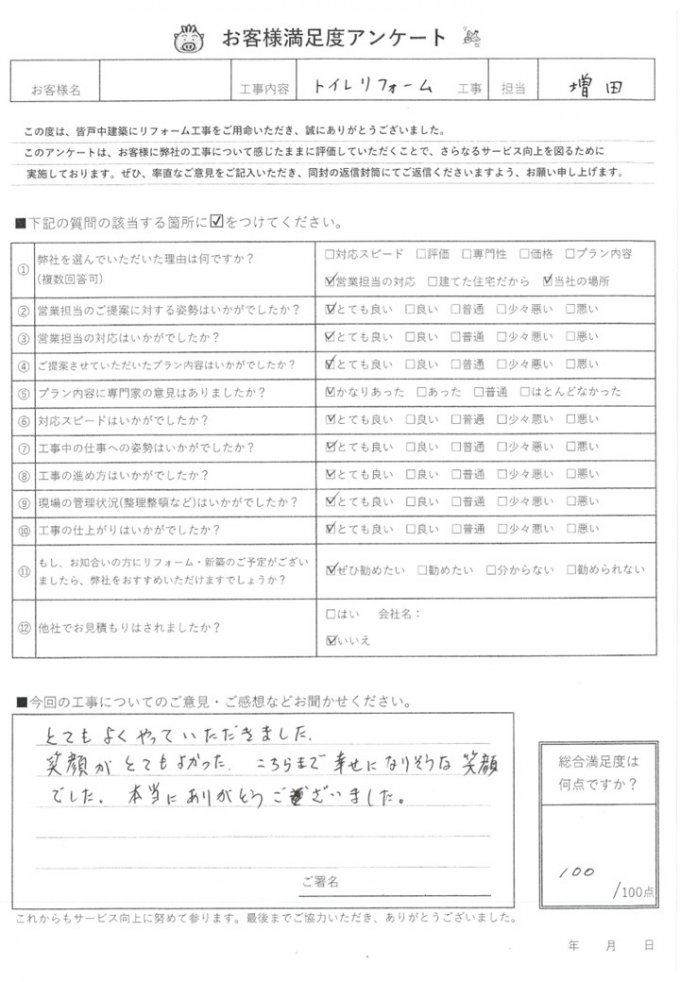 お客様満足度アンケート
お客様名 工事内容 トイレリフォーム 工事 担当 増田
この度は、皆戸中建築にリフォーム工事をご用命いただき、誠にありがとうございました。
このアンケートは、お客様に弊社の工事について感じたままに評価していただくことで、さらなるサービス向上を図るために
実施しております。ぜひ、率直なご意見をご記入いただき、同封の返信封筒にてご返信くださいますよう、お願い申し上げます。
■下記の質問の該当する箇所に☑をつけてください。
① 弊社を選んでいただいた理由は何ですか？
(複数回答可)
□対応スピード □評価 □専門性 □価格 □プラン内容
☑営業担当の対応 □建てた住宅だから ☑当社の場所
② 営業担当のご提案に対する姿勢はいかがでしたか？ ☑とても良い □良い □普通 □少々悪い □悪い
③ 営業担当の対応はいかがでしたか？ ☑とても良い □良い □普通 □少々悪い □悪い
④ ご提案させていただいたプラン内容はいかがでしたか？ ☑とても良い □良い □普通 □少々悪い □悪い
⑤ プラン内容に専門家の意見はありましたか？ ☑かなりあった □あった □普通 □ほとんどなかった
⑥ 対応スピードはいかがでしたか？ ☑とても良い □良い □普通 □少々悪い □悪い
⑦ 工事中の仕事への姿勢はいかがでしたか？ ☑とても良い □良い □普通 □少々悪い □悪い
⑧ 工事の進め方はいかがでしたか？ ☑とても良い □良い □普通 □少々悪い □悪い
⑨ 現場の管理状況(整理整頓など)はいかがでしたか？ ☑とても良い □良い □普通 □少々悪い □悪い
⑩ 工事の仕上がりはいかがでしたか？ ☑とても良い □良い □普通 □少々悪い □悪い
⑪ もし、お知合いの方にリフォーム・新築のご予定がござい
ましたら、弊社をおすすめいただけますでしょうか？
☑ぜひ勧めたい □勧めたい □分からない □勧められない
⑫ 他社でお見積もりはされましたか？
□はい 会社名：
☑いいえ
■今回の工事についてのご意見・ご感想などお聞かせください。
とてもよくやっていただきました。
笑顔がとてもよかった。こちらまで幸せになりそうな笑顔
でした。本当にありがとうございました。
ご署名
総合満足度は
何点ですか？
100
/100点
これからもサービス向上に努めて参ります。最後までご協力いただき、ありがとうございました。
年 月 日